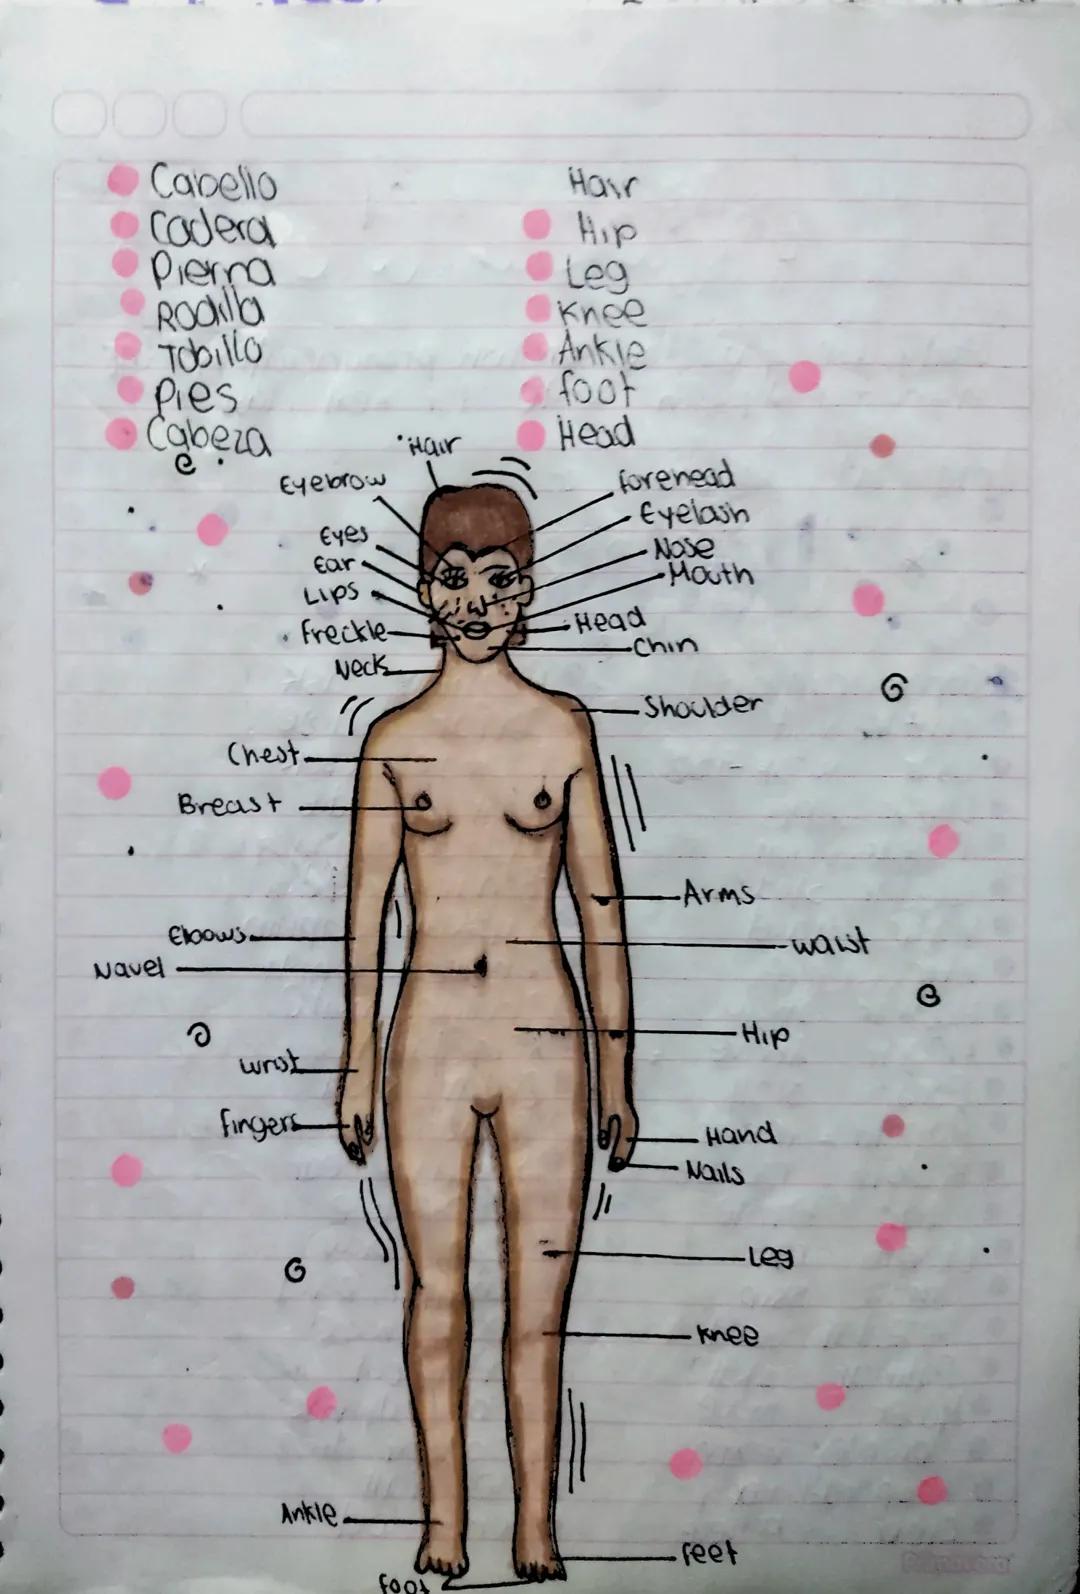 Cabello Hair
Cadera Hip
Pierna Leg
Rodilla Knee
Tobillo Ankle
Pies foot
Cabeza Head
Hair
Eyebrow
forehead
Eyelash
Eyes
Nose
Ear
Mouth
Lips
Head
freckle
Chin
Neck
Shoulder
Chest
Breast
Arms
Elbows
waist
Navel
Hip
wrist
fingers
Hand
Nails
Leg
Knee
Ankle
feet
foot